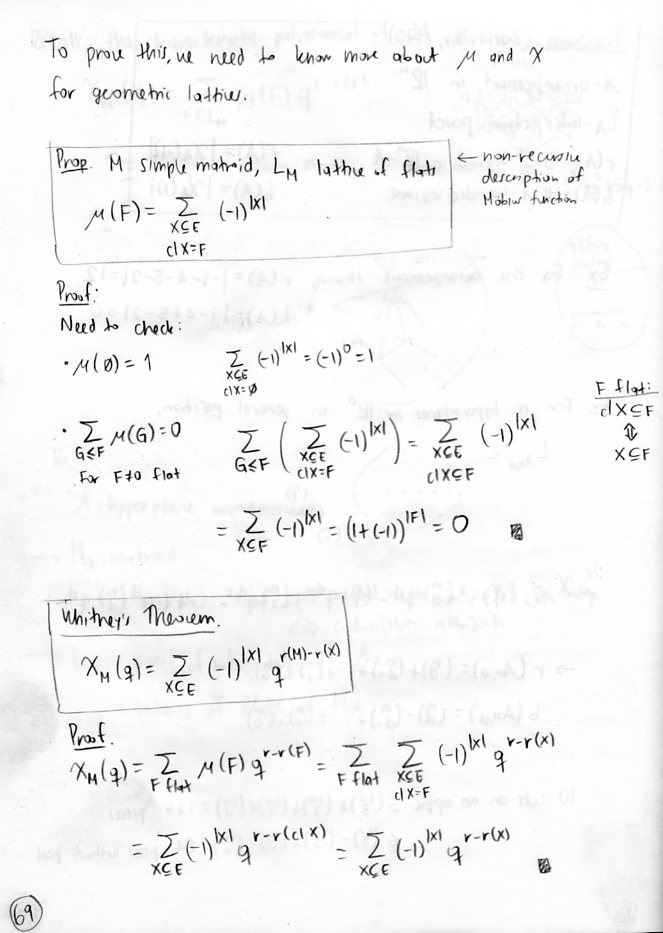 To prove this, we need to know more about μ and χ
for geometric lattices.
Prop. M simple matroid, L_M lattice of flats
μ(F) = Σ_{X⊆E, cl X=F} (-1)^{|X|}
← non-recursive
description of
Möbius function
Proof:
Need to check:
· μ(∅) = 1   Σ_{X⊆E, cl X=∅} (-1)^{|X|} = (-1)^0 = 1
· Σ_{G≤F} μ(G) = 0   Σ_{G≤F} ( Σ_{X⊆E, cl X=F} (-1)^{|X|} ) = Σ_{X⊆E, cl X⊆F} (-1)^{|X|}
For F≠0 flat
F flat:
cl X⊆F
⇕
X⊆F
= Σ_{X⊆F} (-1)^{|X|} = (1+(-1))^{|F|} = 0
Whitney's Theorem.
χ_M(q) = Σ_{X⊆E} (-1)^{|X|} q^{r(M)-r(X)}
Proof.
χ_M(q) = Σ_{F flat} μ(F) q^{r-r(F)} = Σ_{F flat} Σ_{X⊆E, cl X=F} (-1)^{|X|} q^{r-r(X)}
= Σ_{X⊆E} (-1)^{|X|} q^{r-r(cl X)} = Σ_{X⊆E} (-1)^{|X|} q^{r-r(X)}
69